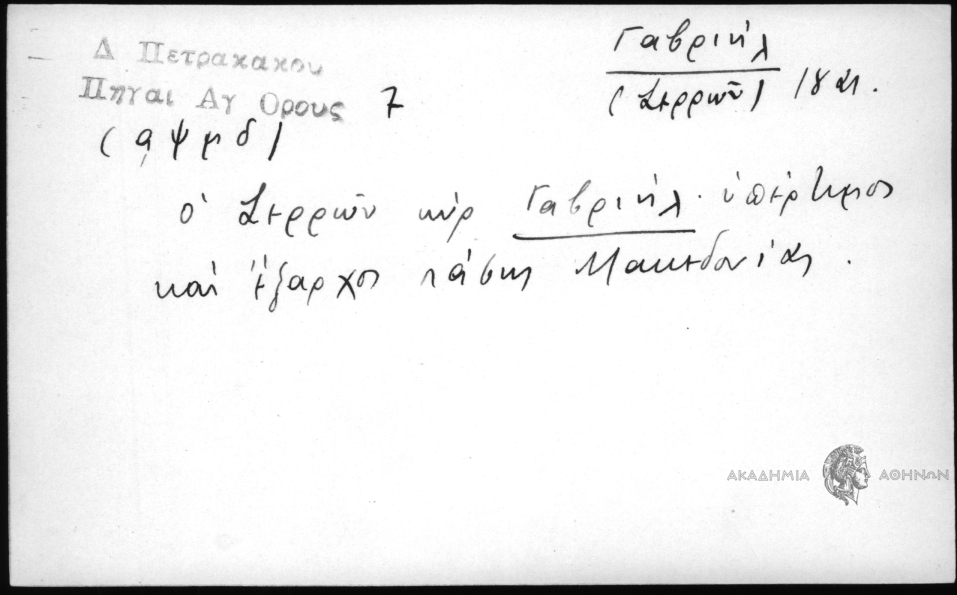 Δ Πετρακακου
Πηγαι Αγ Ορους 7
Γαβριήλ
(Σερρῶν) 18 αι.
(αψμδ)
ὁ Σερρῶν κύρ Γαβριήλ ὑπέρτιμος
καί ἔξαρχος πάσης Μακεδονίας.
ΑΚΑΔΗΜΙΑ ΑΘΗΝΩΝ